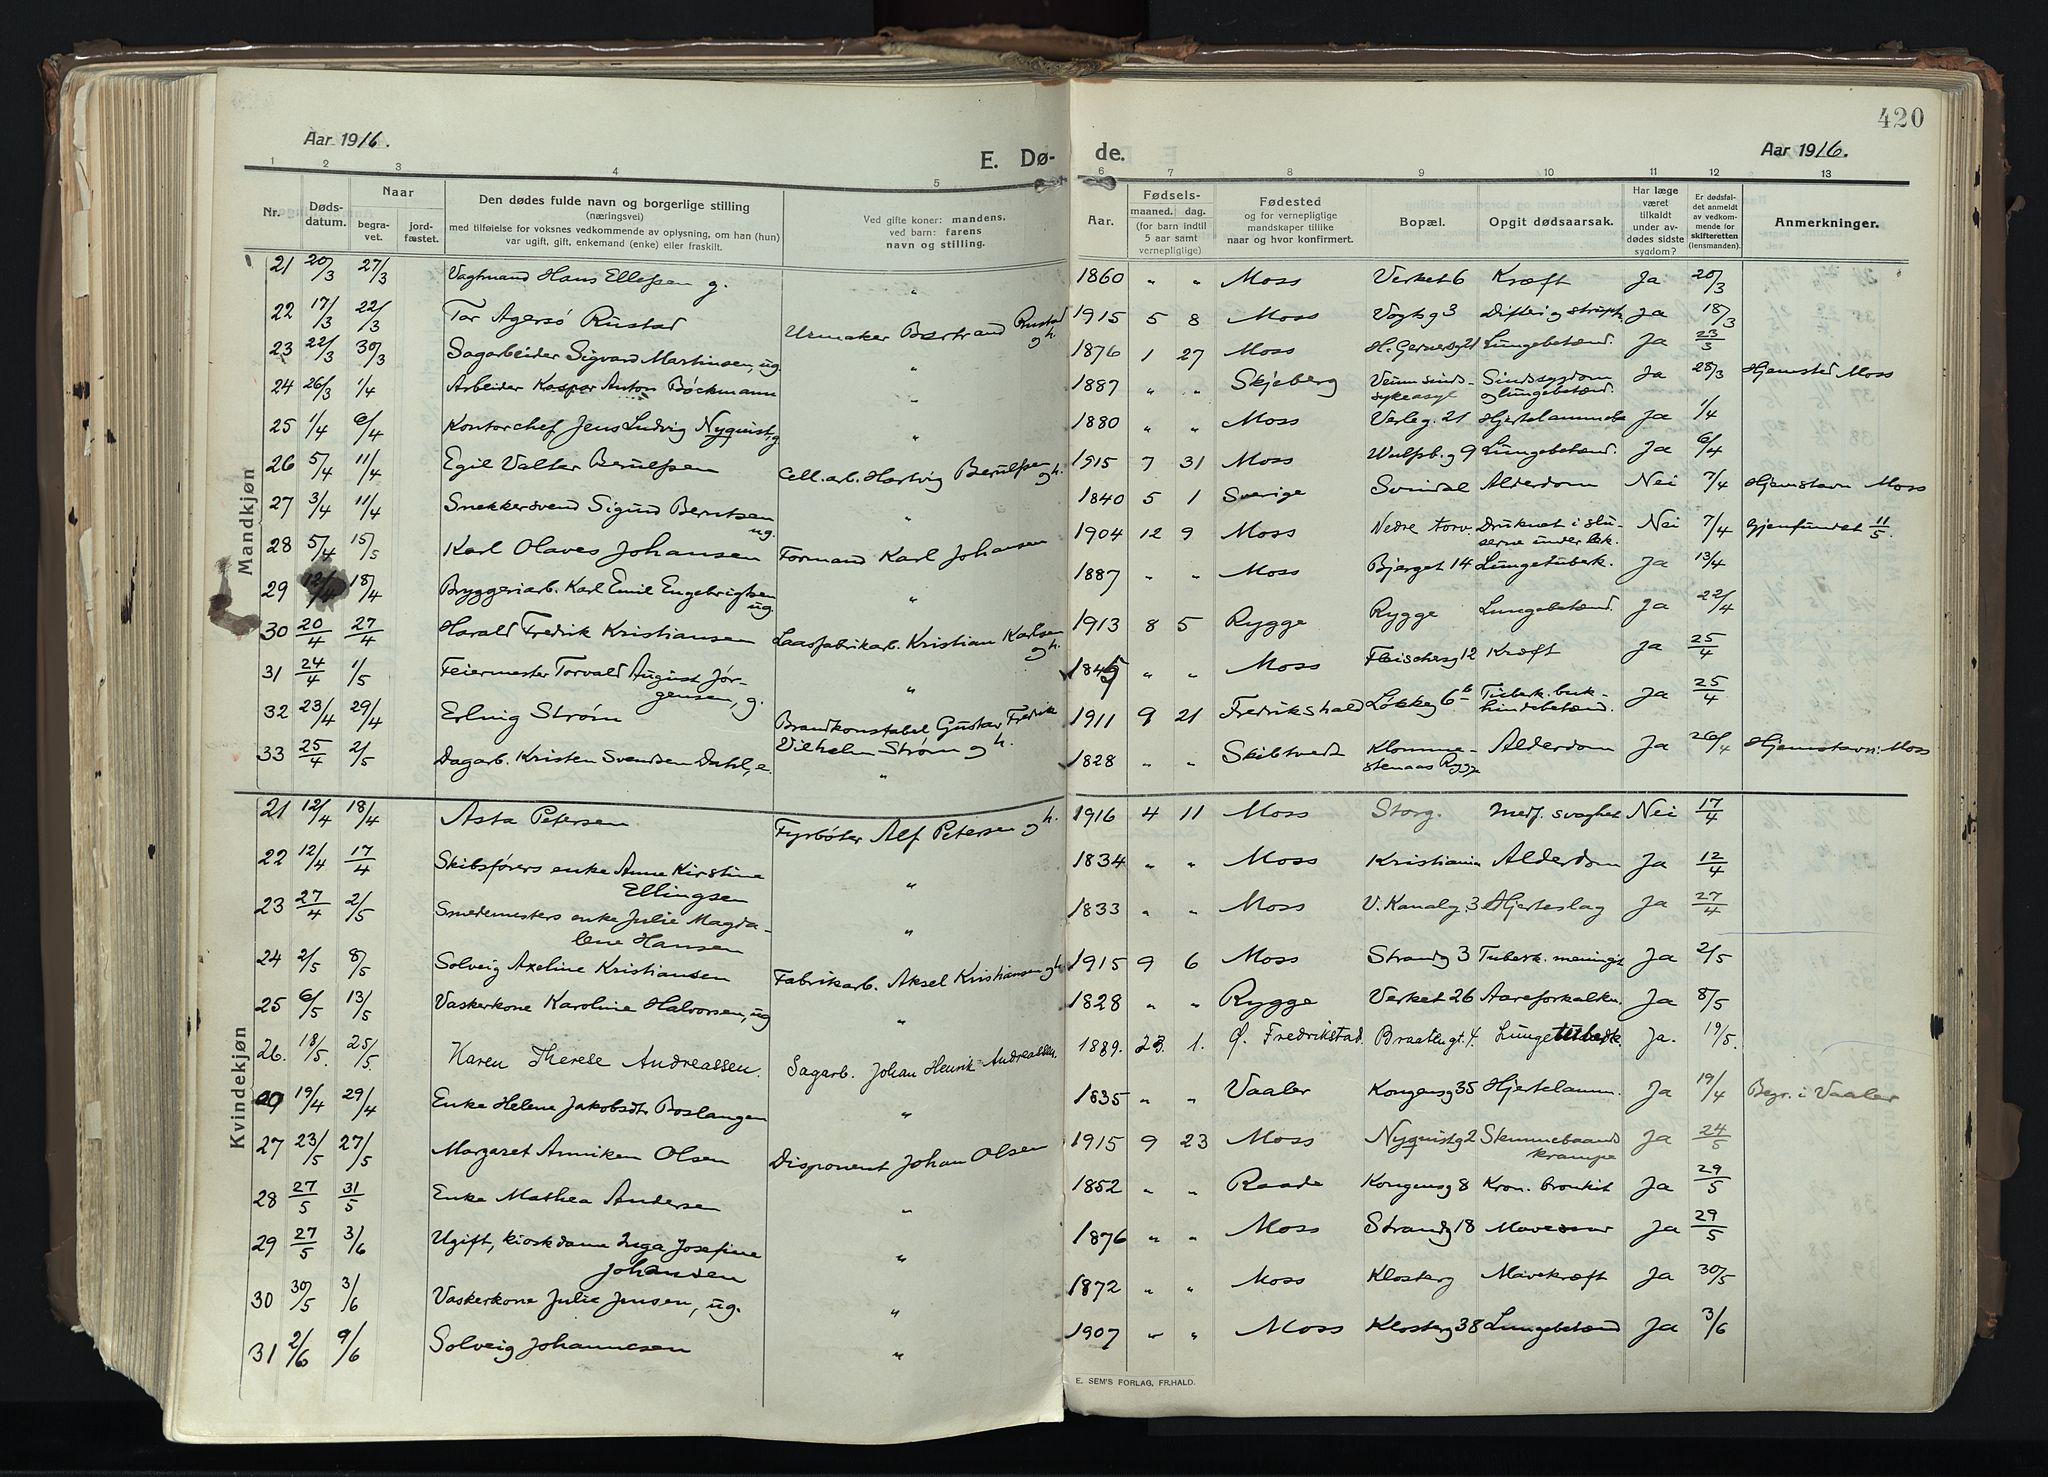 420
Aar 1916.
E. Dø-
de.
Aar 1916.
1 2 3 4 5 6 7 8 9 10 11 12 13
Nr.
Døds-
datum.
Naar
begra-
vet.
jord-
fæstet.
Den dødes fulde navn og borgerlige stilling
(næringsvei)
med tilføielse for voksnes vedkommende av oplysning, om han (hun)
var ugift, gift, enkemand (enke) eller fraskilt.
Ved gifte koner: mandens,
ved barn: farens
navn og stilling.
Aar.
Fødsels-
maaned. dag.
(for barn indtil
5 aar samt
vernepligtige)
Fødested
og for vernepligtige
mandskaper tillike
naar og hvor konfirmert.
Bopæl.
Opgit dødsaarsak.
Har læge
været
tilkaldt
under av-
dødes sidste
sygdom?
Er dødsfal-
det anmeldt
av vedkom-
mende for
skifteretten
(lensmanden).
Anmerkninger.
Mandkjøn
21 20/3 27/3 Vagtmand Hans Ellefsen g. " 1860 " " Moss Verket 6 Kræft Ja 20/3
22 17/3 22/3 Tor Agersö Rustad Urmaker Bertrand Rustad g h. 1915 5 8 Moss Vogts g 3 Difteri og Ja 18/3
23 22/3 30/3 Sagarbeider Sigvard Martinsen, ug. " 1876 1 27 Moss H. Gernersg 21 Lungebetænd. Ja 23/3
24 26/3 1/4 Arbeider Kaspar Anton Böckmann " 1887 " " Skjeberg Veum sinds-
sykeasyl Sindssygdom
og lungebetænd. Ja 28/3 Hjemsted Moss
25 1/4 6/4 Kontorchef Jens Ludvig Nyquist, g. " 1880 " " Moss Verleg. 21 Hjertelammelse Ja 1/4
26 5/4 11/4 Egil Valter Berulfsen Cell. arb. Hartvig Berulfsen g h. 1915 7 31 Moss Wulfsb. g 9 Lungebetænd. Ja 6/4
27 3/4 11/4 Snekkersvend Sigurd Berntsen ug. " 1840 5 1 Sverige Svindal Alderdom Nei 7/4 Hjemstavn Moss
28 5/4 15/5 Karl Olaves Johansen Formand Karl Johansen 1904 12 9 Moss Nedre torv. Druknet i slu-
serne under lek. Nei 7/4 Gjenfundet 11/5
29 12/4 18/4 Bryggeriarb. Karl Emil Engebrigtsen ug. " 1887 " " Moss Bjerget 14 Lungetuberk. Ja 13/4
30 20/4 27/4 Harald Fredrik Kristiansen Laasfabrikarb. Kristian Karlsen g h. 1913 8 5 Rygge Rygge Lungebetænd. Ja 22/4
31 24/4 1/5 Feiermester Torvald August Jør-
gensen, g. " 1845 " " Moss Fleischersg 12 Kræft Ja 25/4
32 23/4 29/4 Erling Strøm Brandkonstabel Gustav Fredrik
Vilhelm Strøm g h. 1911 9 21 Fredrikshald Løkkeg 6b Tuberk. buk-
hindebetænd. Ja 25/4
33 25/4 2/5 Dagarb. Kristen Svendsen Dahl, e. " 1828 " " Skibtvedt Klomme-
stenaas Rygge Alderdom Ja 26/4 Hjemstavn: Moss
Kvindekjøn
21 12/4 18/4 Asta Petersen Fyrbøter Alf Petersen g h. 1916 4 11 Moss Storg. Medf. svaghet Nei 17/4
22 12/4 17/4 Skibsførers enke Anne Kirstine
Ellingsen " 1834 " " Moss Kristiania Alderdom Ja 12/4
23 27/4 2/5 Smedemesters enke Julie Magda-
lene Hansen " 1833 " " Moss V. Kanalg. 3 Hjerteslag Ja 27/4
24 2/5 8/5 Solveig Axeline Kristiansen Fabrikarb. Aksel Kristiansen g h 1915 9 6 Moss Strandg 3 Tuberk. meningit Ja 2/5
25 6/5 13/5 Vaskerkone Karoline Halvorsen, ug " 1828 " " Rygge Verket 26 Aareforkalkn. Ja 8/5
26. 18/5 25/5 Karen Therese Andreassen. Sagarb. Johan Henrik Andreassen. 1889. 1. Ø. Fredrikstad. Braatengt. 4. Lungetuberk. Ja. 19/5.
19/4 29/4 Enke Helene Jakobsdtr Boslangen " 1835 " " Vaaler Kongensg 35 Hjertelamm. Ja 19/4 Begr. i Vaaler
27 23/5 27/5 Margaret Anniken Olsen Disponent Johan Olsen 1915 9 23 Moss Nyquistg 2 Stemmebaands
krampe Ja 24/5
28 27/5 31/5 Enke Mathea Andersen " 1852 " " Raade Kongensg 8 Kron. bronkit Ja 29/5
29 27/5 3/6 Ugift, kioskdame Inga Josefine
Johansen " 1876 " " Moss Strandg 18 Mavesaar Ja 29/5
30 30/5 3/6 Vaskerkone Julie Jensen, ug. " 1872 " " Moss Klosterg Mavekræft Ja 30/5
31 2/6 9/6 Solveig Johannesen " 1907 " " Moss Klosterg 38 Lungebetænd Ja 3/6
E. SEM'S FORLAG, FR.HALD.